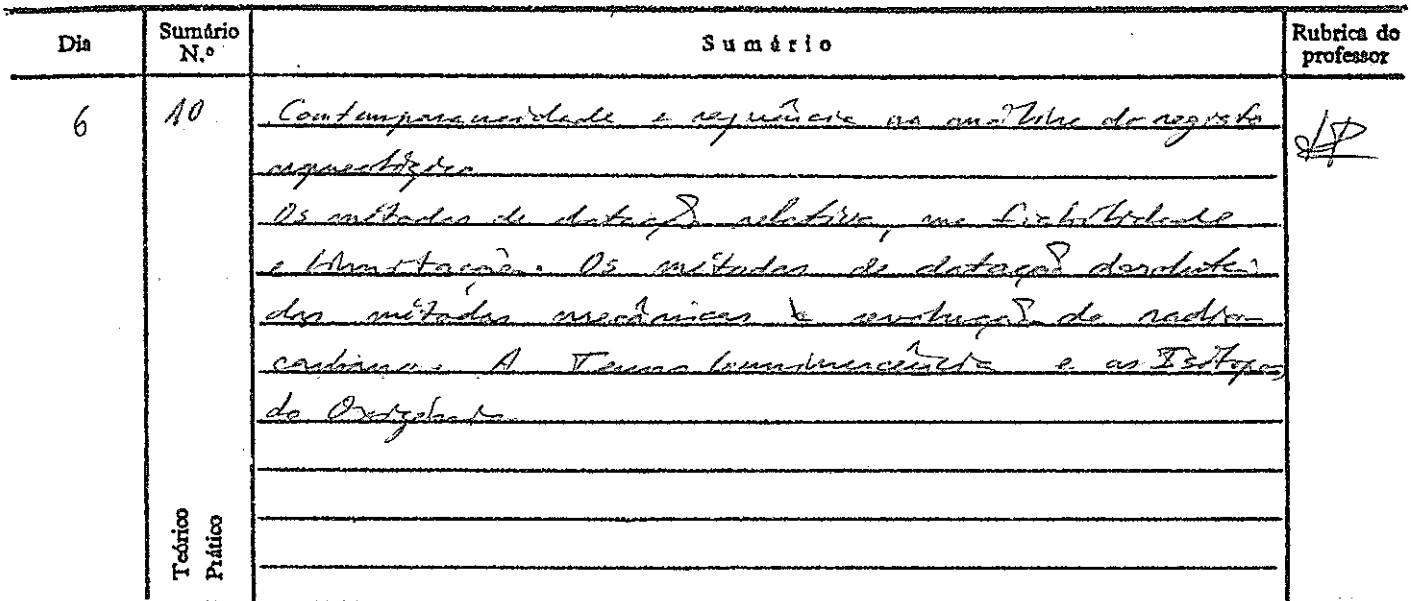 Dia
Sumário N.º
Sumário
Rubrica do professor
6
10
Contemporaneidade e sequência na análise do registo
arqueológico
Os métodos de datação relativa, sua fiabilidade
e limitações. Os métodos de datação absoluta:
dos métodos mecânicos à revolução do radio
carbono. A Termoluminescência e os Isótopos
do Oxigénio
Teórico
Prático